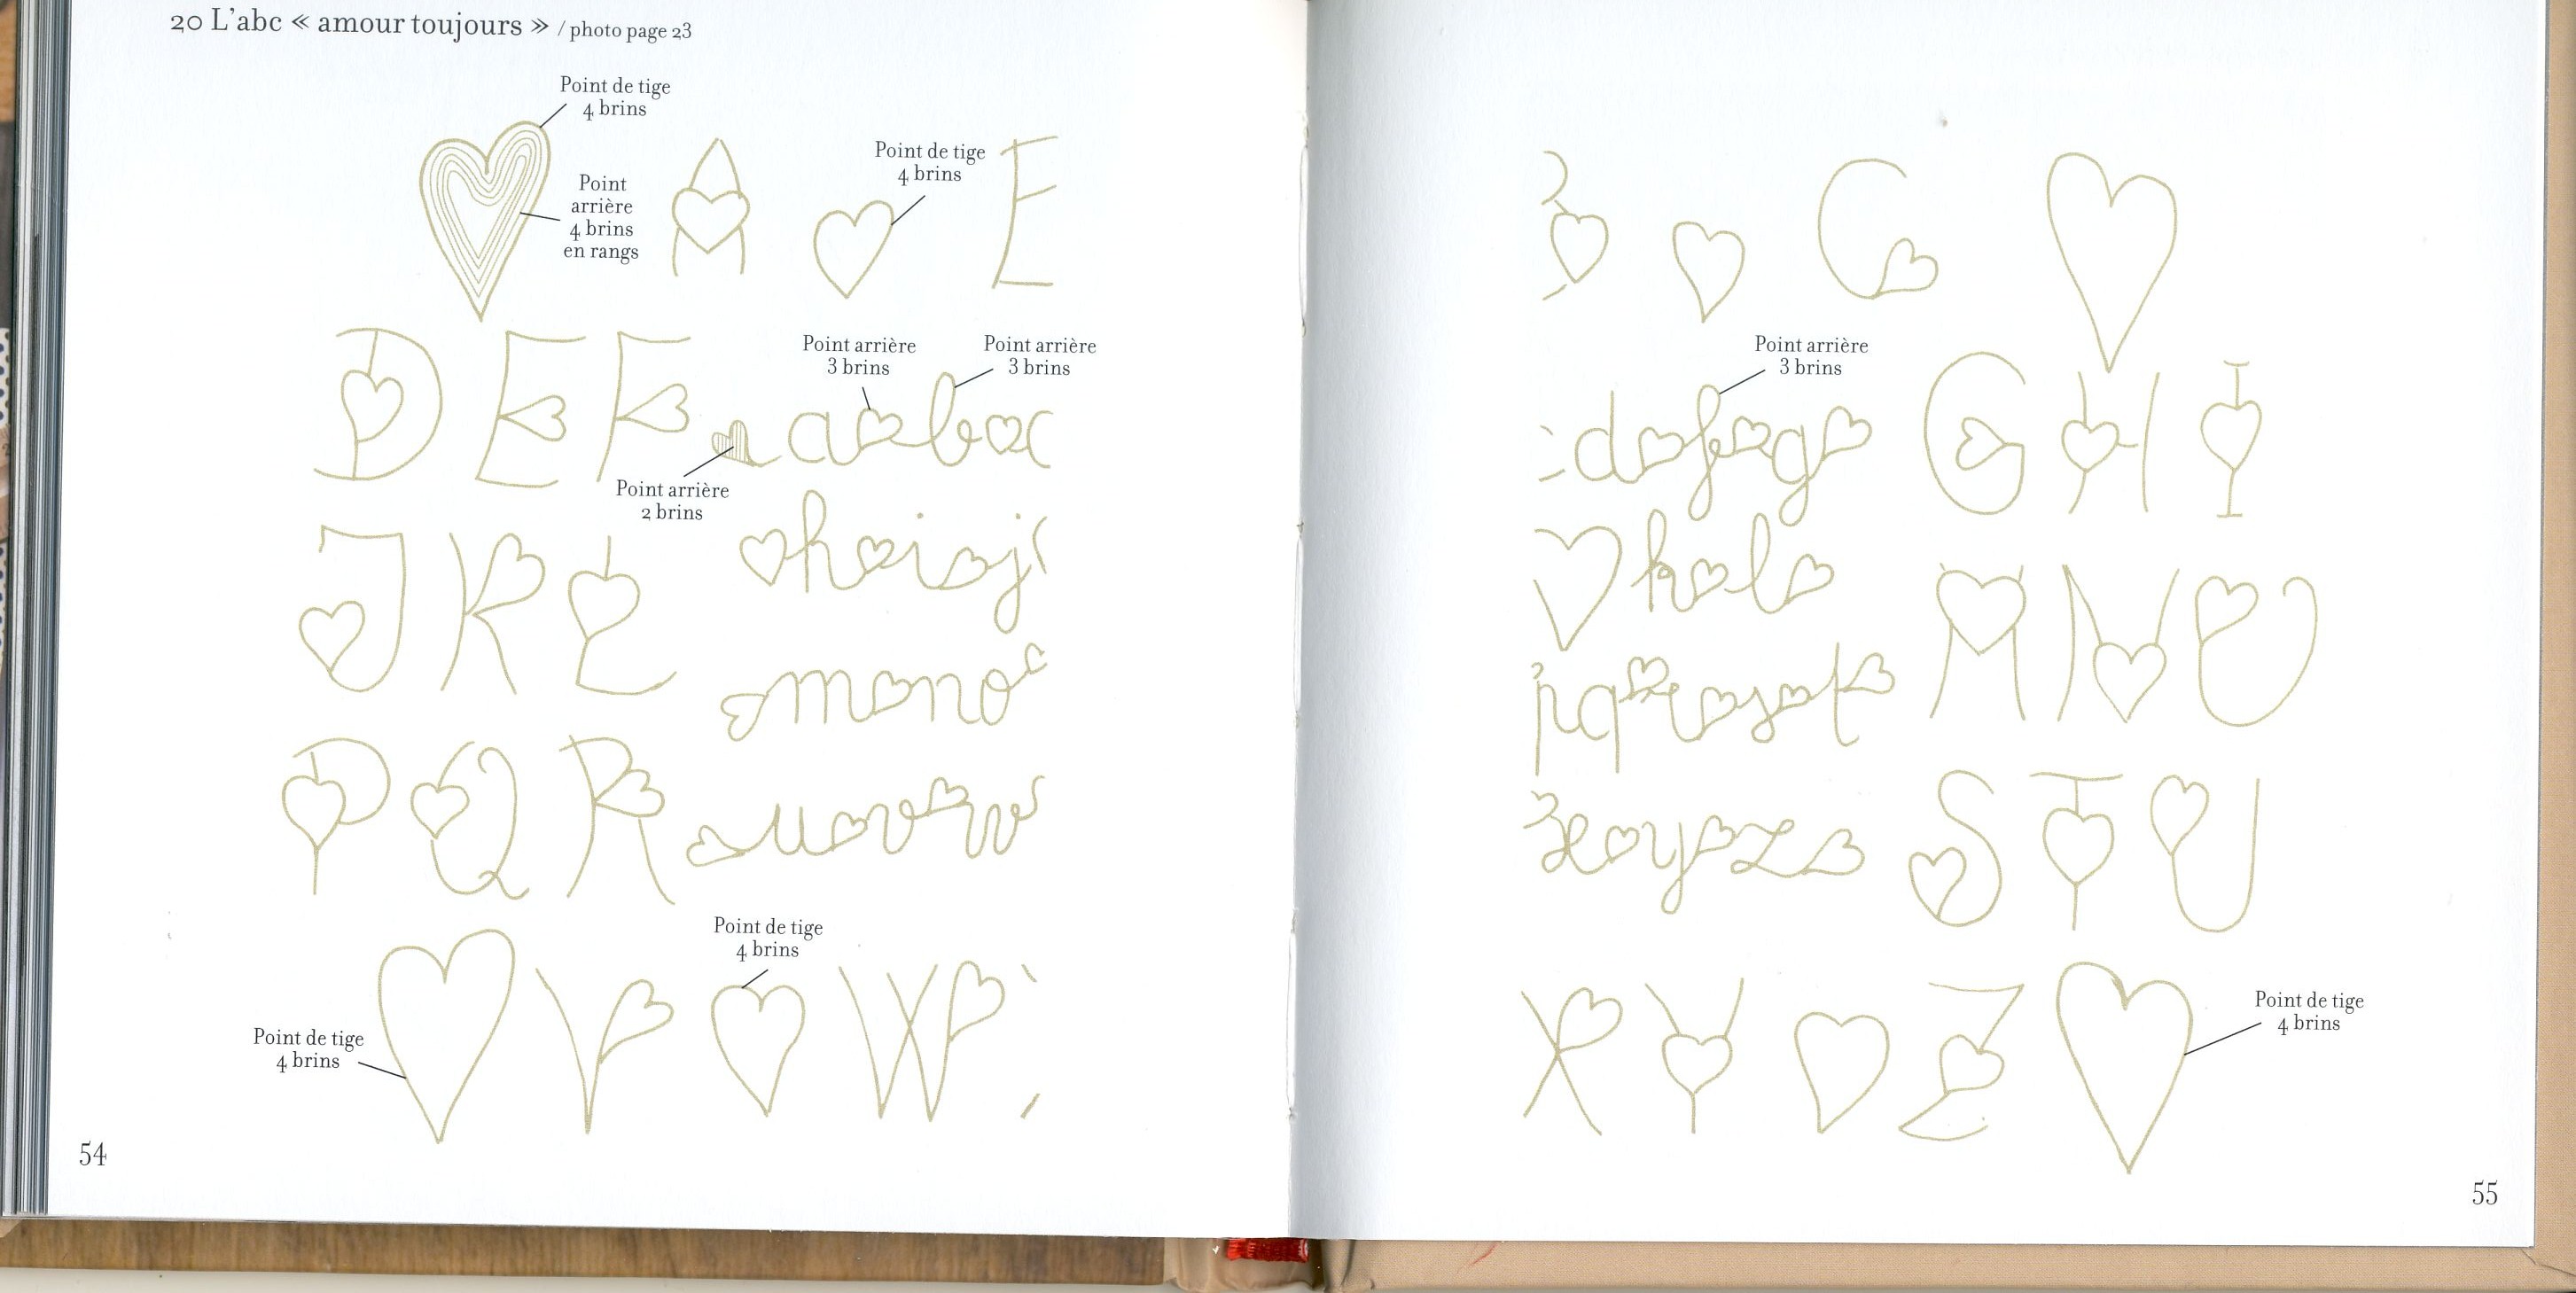 20 L'abc « amour toujours » / photo page 23
Point de tige
4 brins
Point
arrière
4 brins
en rangs
A
Point de tige
4 brins
D E F
Point arrière
3 brins
Point arrière
3 brins
a b c
Point arrière
2 brins
J K L
h i j
m n o
P Q R
u v w
Point de tige
4 brins
V
Point de tige
4 brins
W
54
B C
Point arrière
3 brins
d f g
G H I
k l
M N O
p q r s t
S T U
x y z
X Y Z
Point de tige
4 brins
55